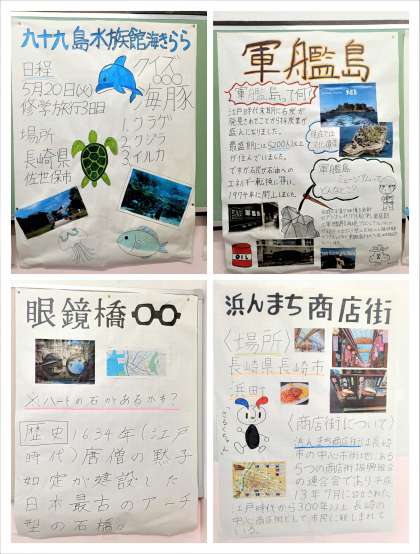 九十九島水族館海きらら
日程
5月20日(火)
修学旅行3日目
場所
長崎県
佐世保市
クイズ
海豚
1.クラゲ
2.クジラ
3.イルカ
軍艦島
軍艦島って何?
江戸時代末期に石炭が
発見されてことから石炭産業が
盛んになりました。
最盛期には5200人以上
が住んでいました。
ですが石炭から石油への
エネルギー転換に伴い、
1974年に閉山しました。
軍艦島
ミュージアムって
どんなとこ?
OIL
眼鏡橋
※ハートの石があるかも?
歴史 1634年(江戸
時代)唐僧の黙子
如定が建設した
日本最古のアーチ
型の石橋。
浜んまち商店街
〈場所〉
長崎県長崎市
浜町
〈商店街について〉
浜んまち商店街は長崎
市の中心市街地にある
5つの商店街振興組合
の連合会であり平成
13年7月に設立された
江戸時代から300年以上長崎の
中心商店街として市民に親しまれて
いる。